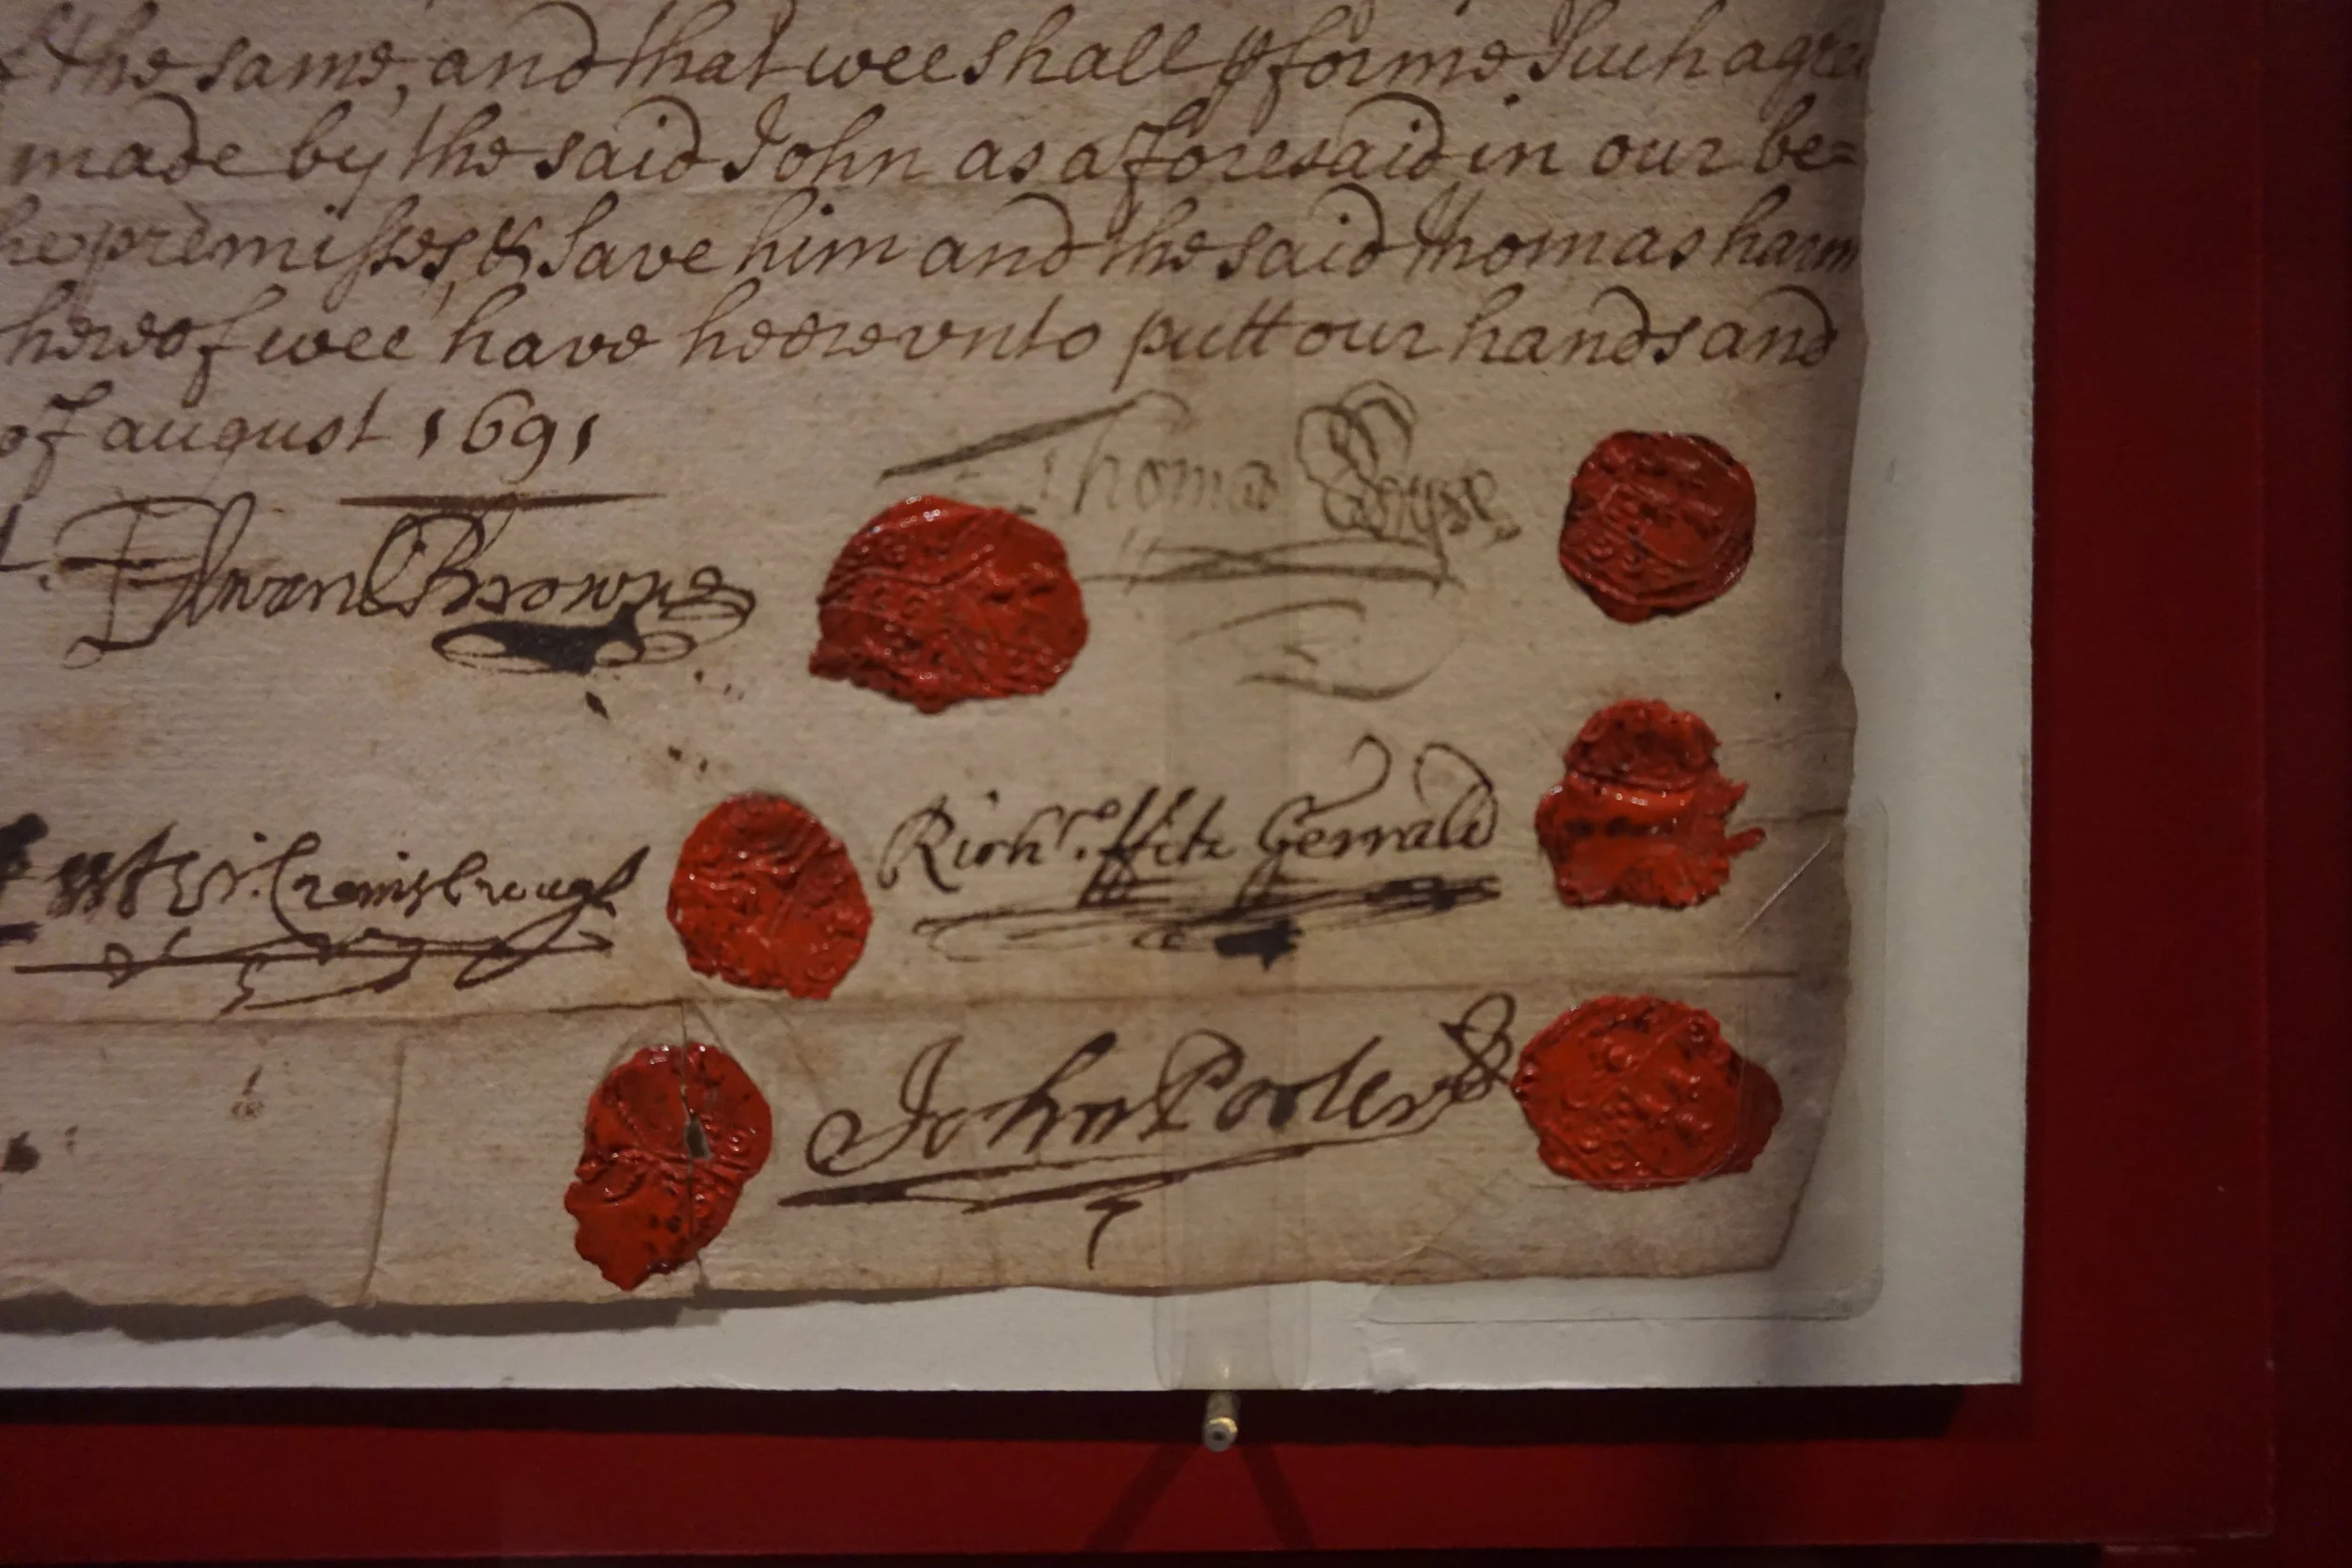 the same, and that wee shall pforme Such agre
made by the said John as aforesaid in our be=
he premisses, & Save him and the said Thomas harm
hereof wee have heerevnto putt our hands and
of august 1691
Thomas
Edward Browne
Richd. ffitz Gerrald
John Porter